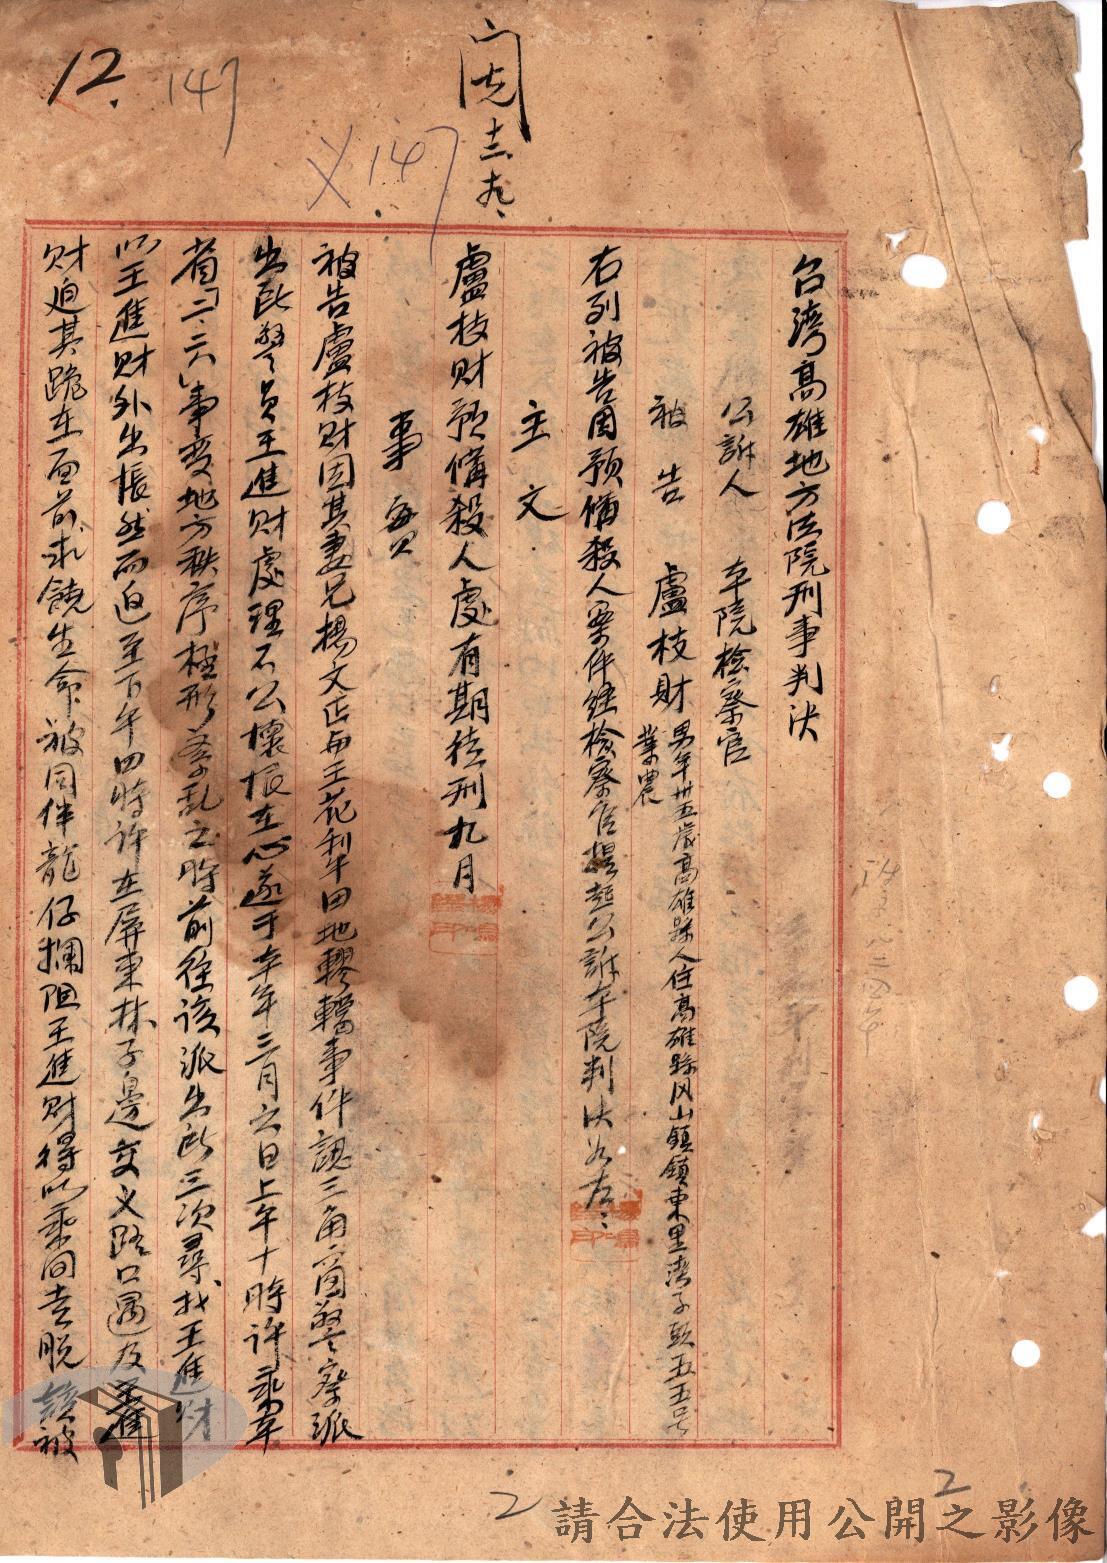 12.
147
147
台湾高雄地方法院刑事判决
公訴人 本院檢察官
被告 盧枝財 男年卅五歲高雄縣人住高雄縣冈山鎮鎮東里湾子頭五五号
業農
右列被告因預備殺人案件經檢察官提起公訴本院判决如左：
主文
盧枝財預備殺人處有期徒刑九月
事實
被告盧枝財因其妻兄楊文正与王花利牛田地轇轕事件認三角窗警察派
出所警員王進財處理不公懷恨在心遂于本年三月六日上午十時許乘本
省二二八事变地方秩序極形紊乱之時前往該派出所三次尋找王進財
以王進財外出悵然而迫至下午四時許在屏東林子邊交义路口遇及王進
財迫其跪在面前求饒生命被同伴龍仔攔阻王進財得以乘间走脱該被
2
2
請合法使用公開之影像